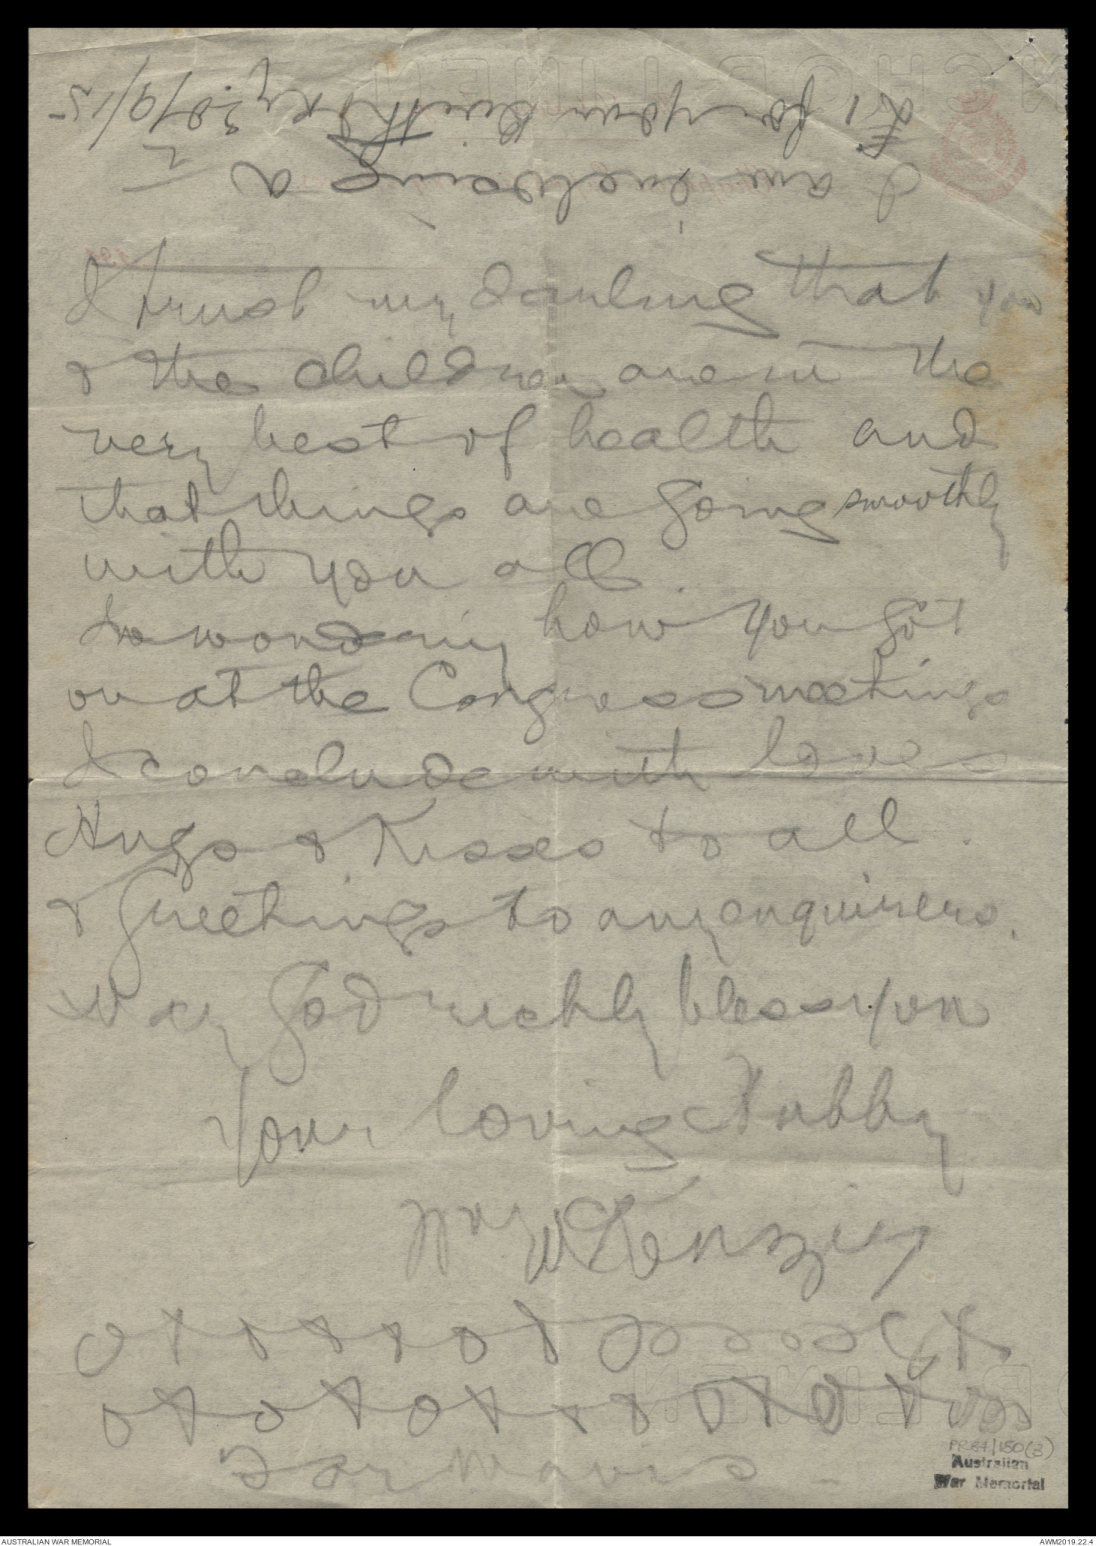 I am enclosing a
£1 for your Birthday 20/9/15
I trust my darling that you
& the children are in the
very best of health and
that things are going smoothly
with you all.
wondering how you got
on at the Congress meetings
I conclude with loves
Hugs & Kisses to all.
& Greetings to any enquirers.
May God richly bless you
Your loving Hubby
Wm McKenzie
For Mavis
PR84/150(3)
Australian
War Memorial
AUSTRALIAN WAR MEMORIAL
AWM2019.22.4